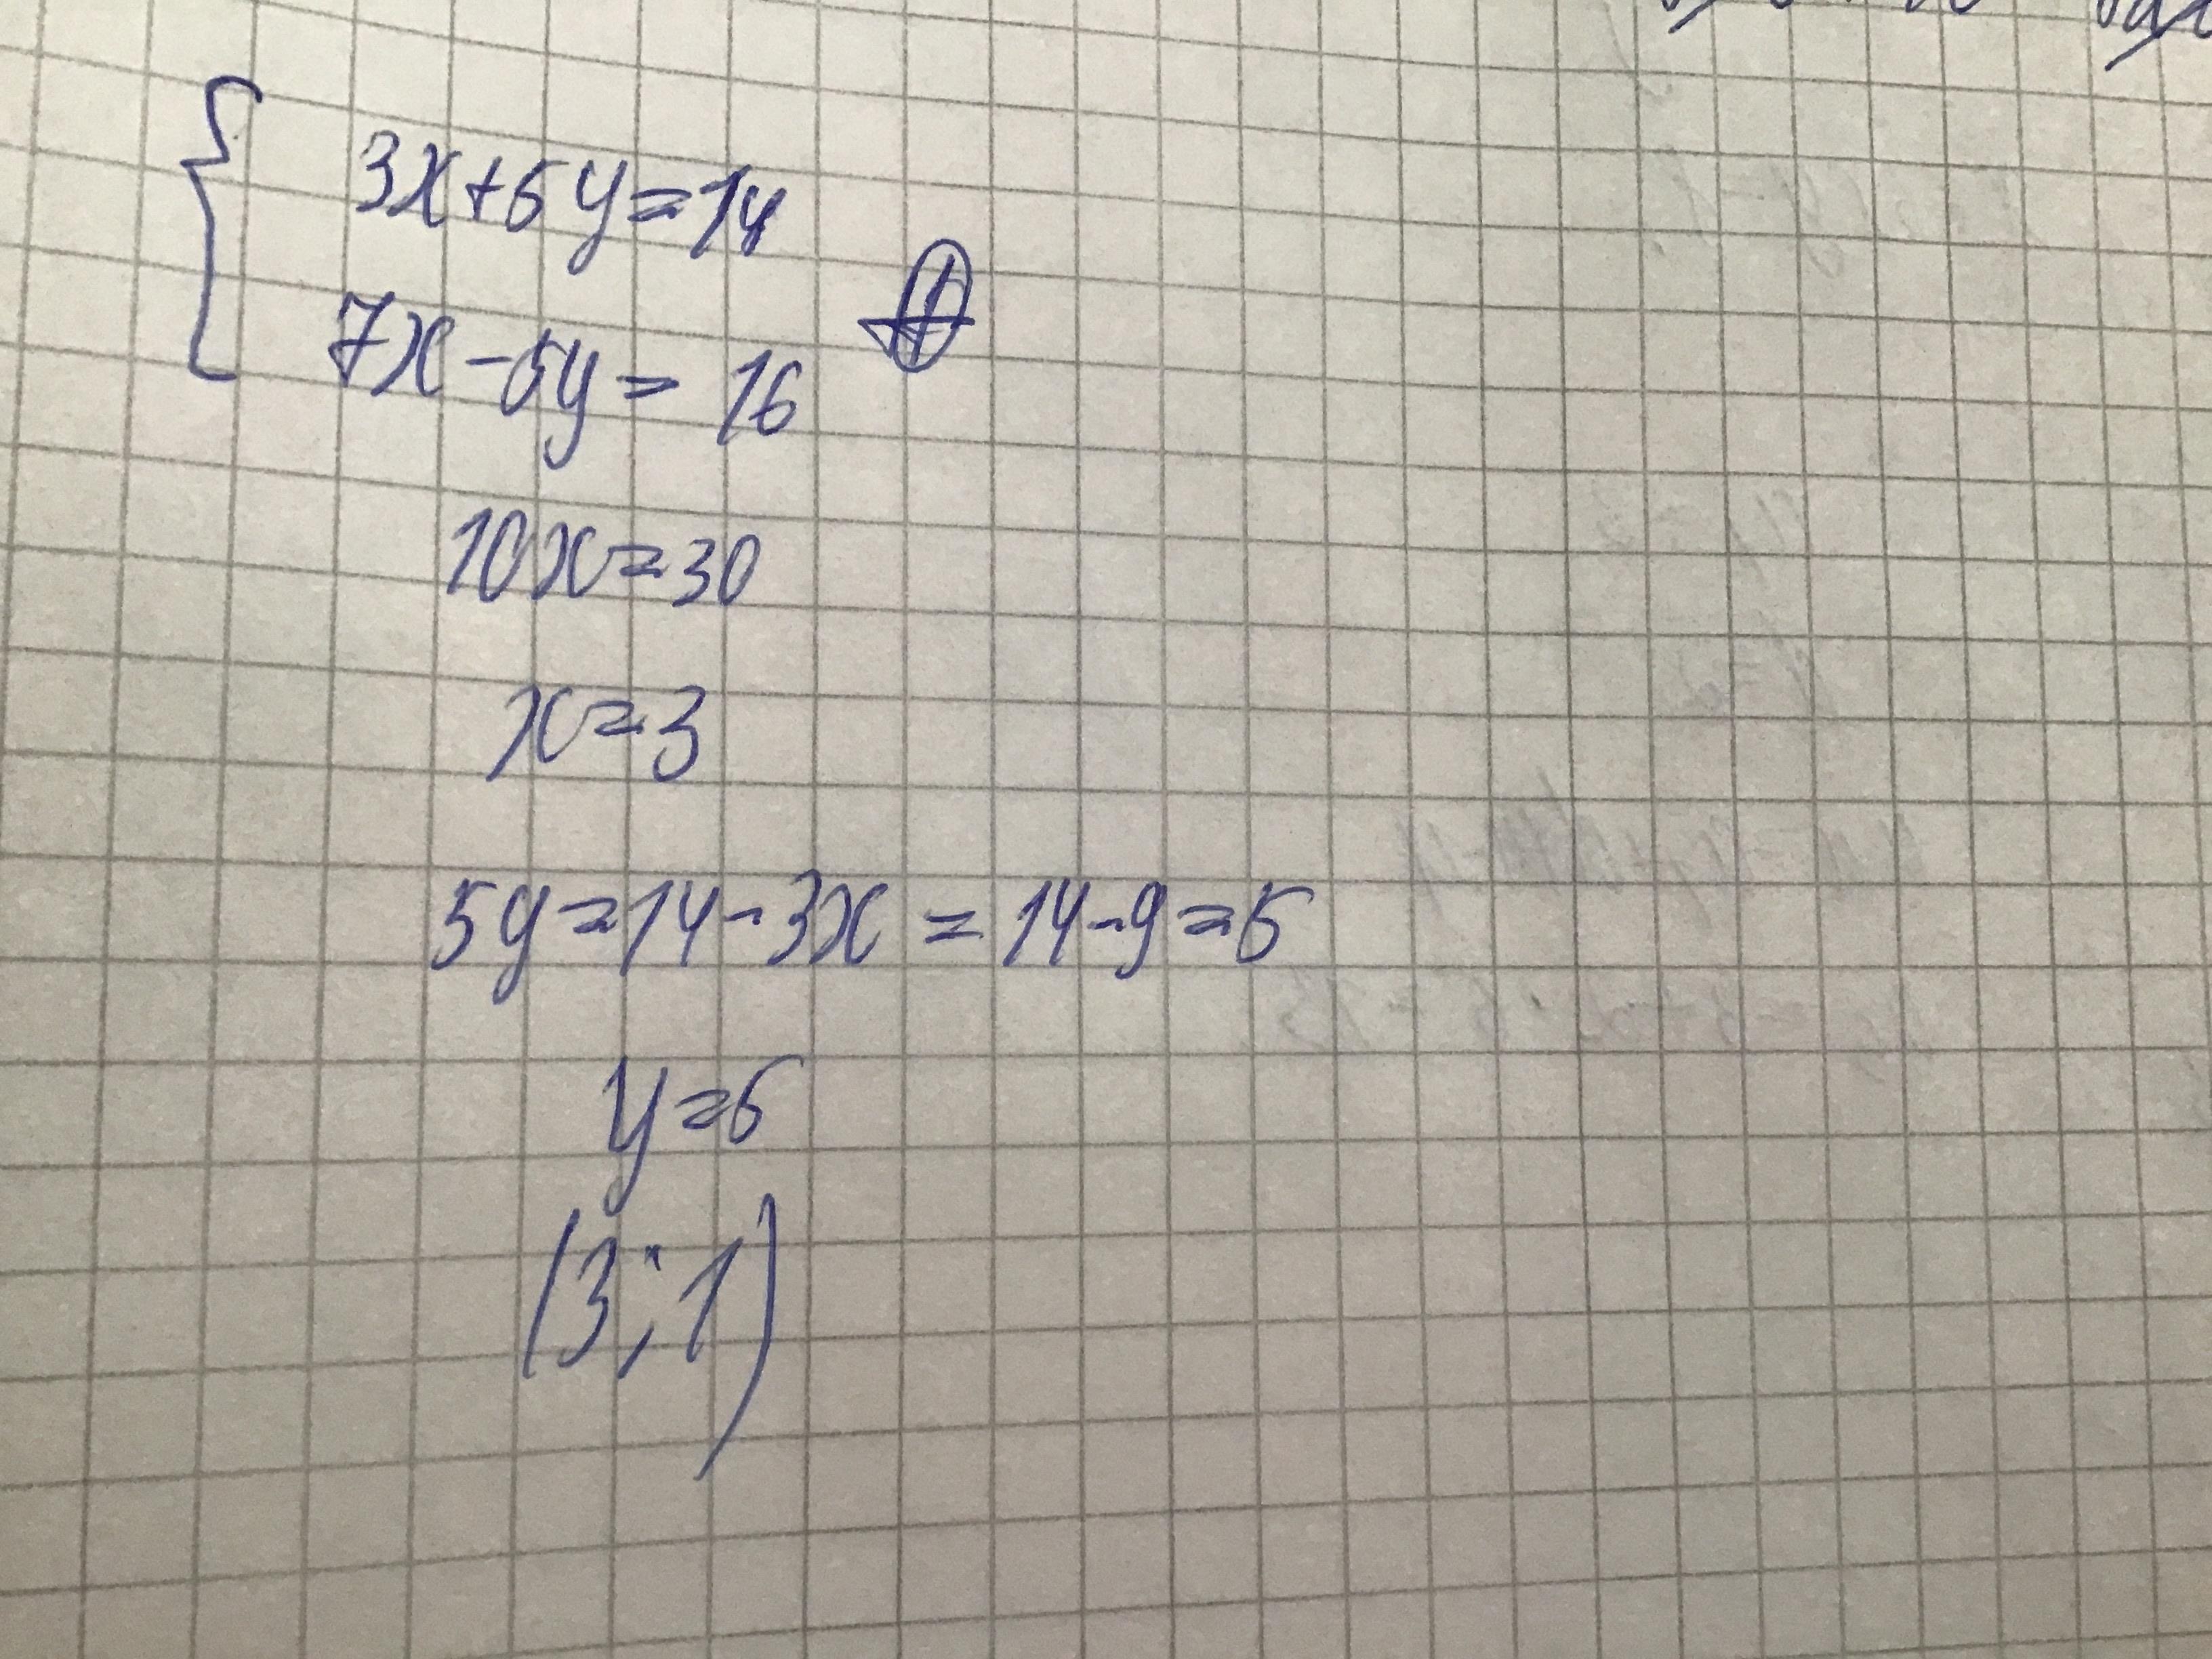 3x+5y=14
7x-5y=16 ⊕
10x=30
x=3
5y=14-3x=14-9=5
y=5
(3;1)